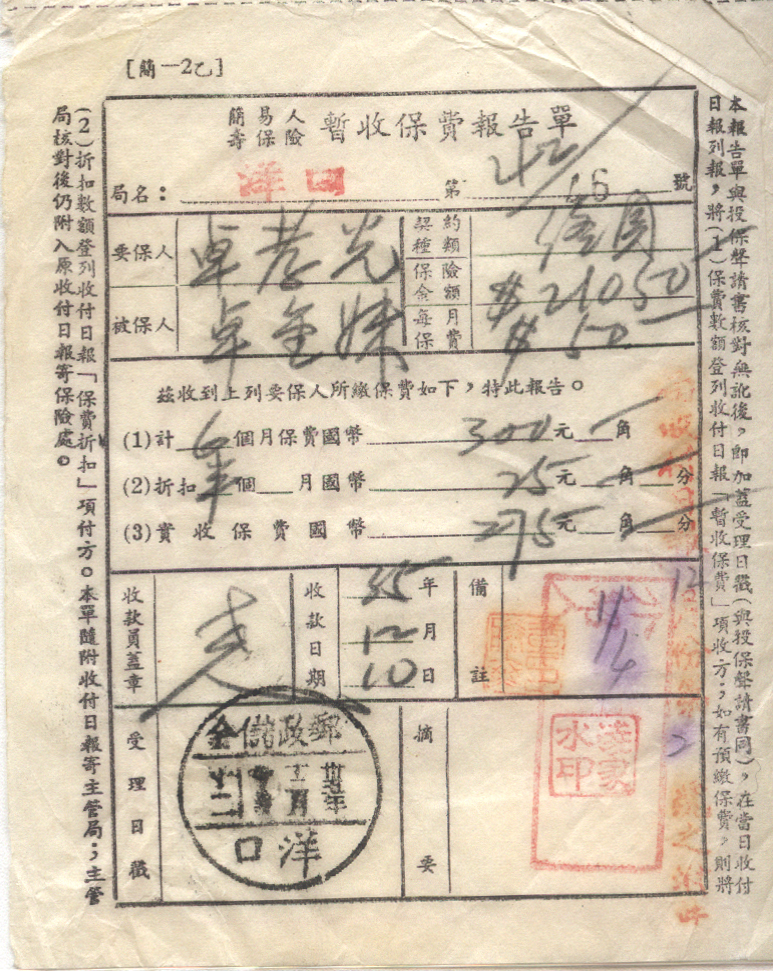 [簡一2乙]
簡易人
壽保險
暫收保費報告單
局名：洋口 第42/16號
要保人 卓孝光
契約種類
被保人 卓金妹
保險金額 $21050
每月保費 $50
茲收到上列要保人所繳保費如下，特此報告。
(1)計 年 個月保費國幣 300元 角
(2)折扣 個 月國幣 25元 角 分
(3)實收保費國幣 275元 角 分
收款員蓋章
收款日期 35年 12月 10日
備註 11/4
受理日戳
郵政儲金
洋口
摘要
凌家水印
本報告單與投保聲請書核對無訛後，即加蓋受理日戳(與投保聲請書同)，在當日收付
日報列報，將(1)保費數額登列收付日報「暫收保費」項收方；如有預繳保費，則將
(2)折扣數額登列收付日報「保費折扣」項付方。本單隨附收付日報寄主管局；主管
局核對後仍附入原收付日報寄保險處。